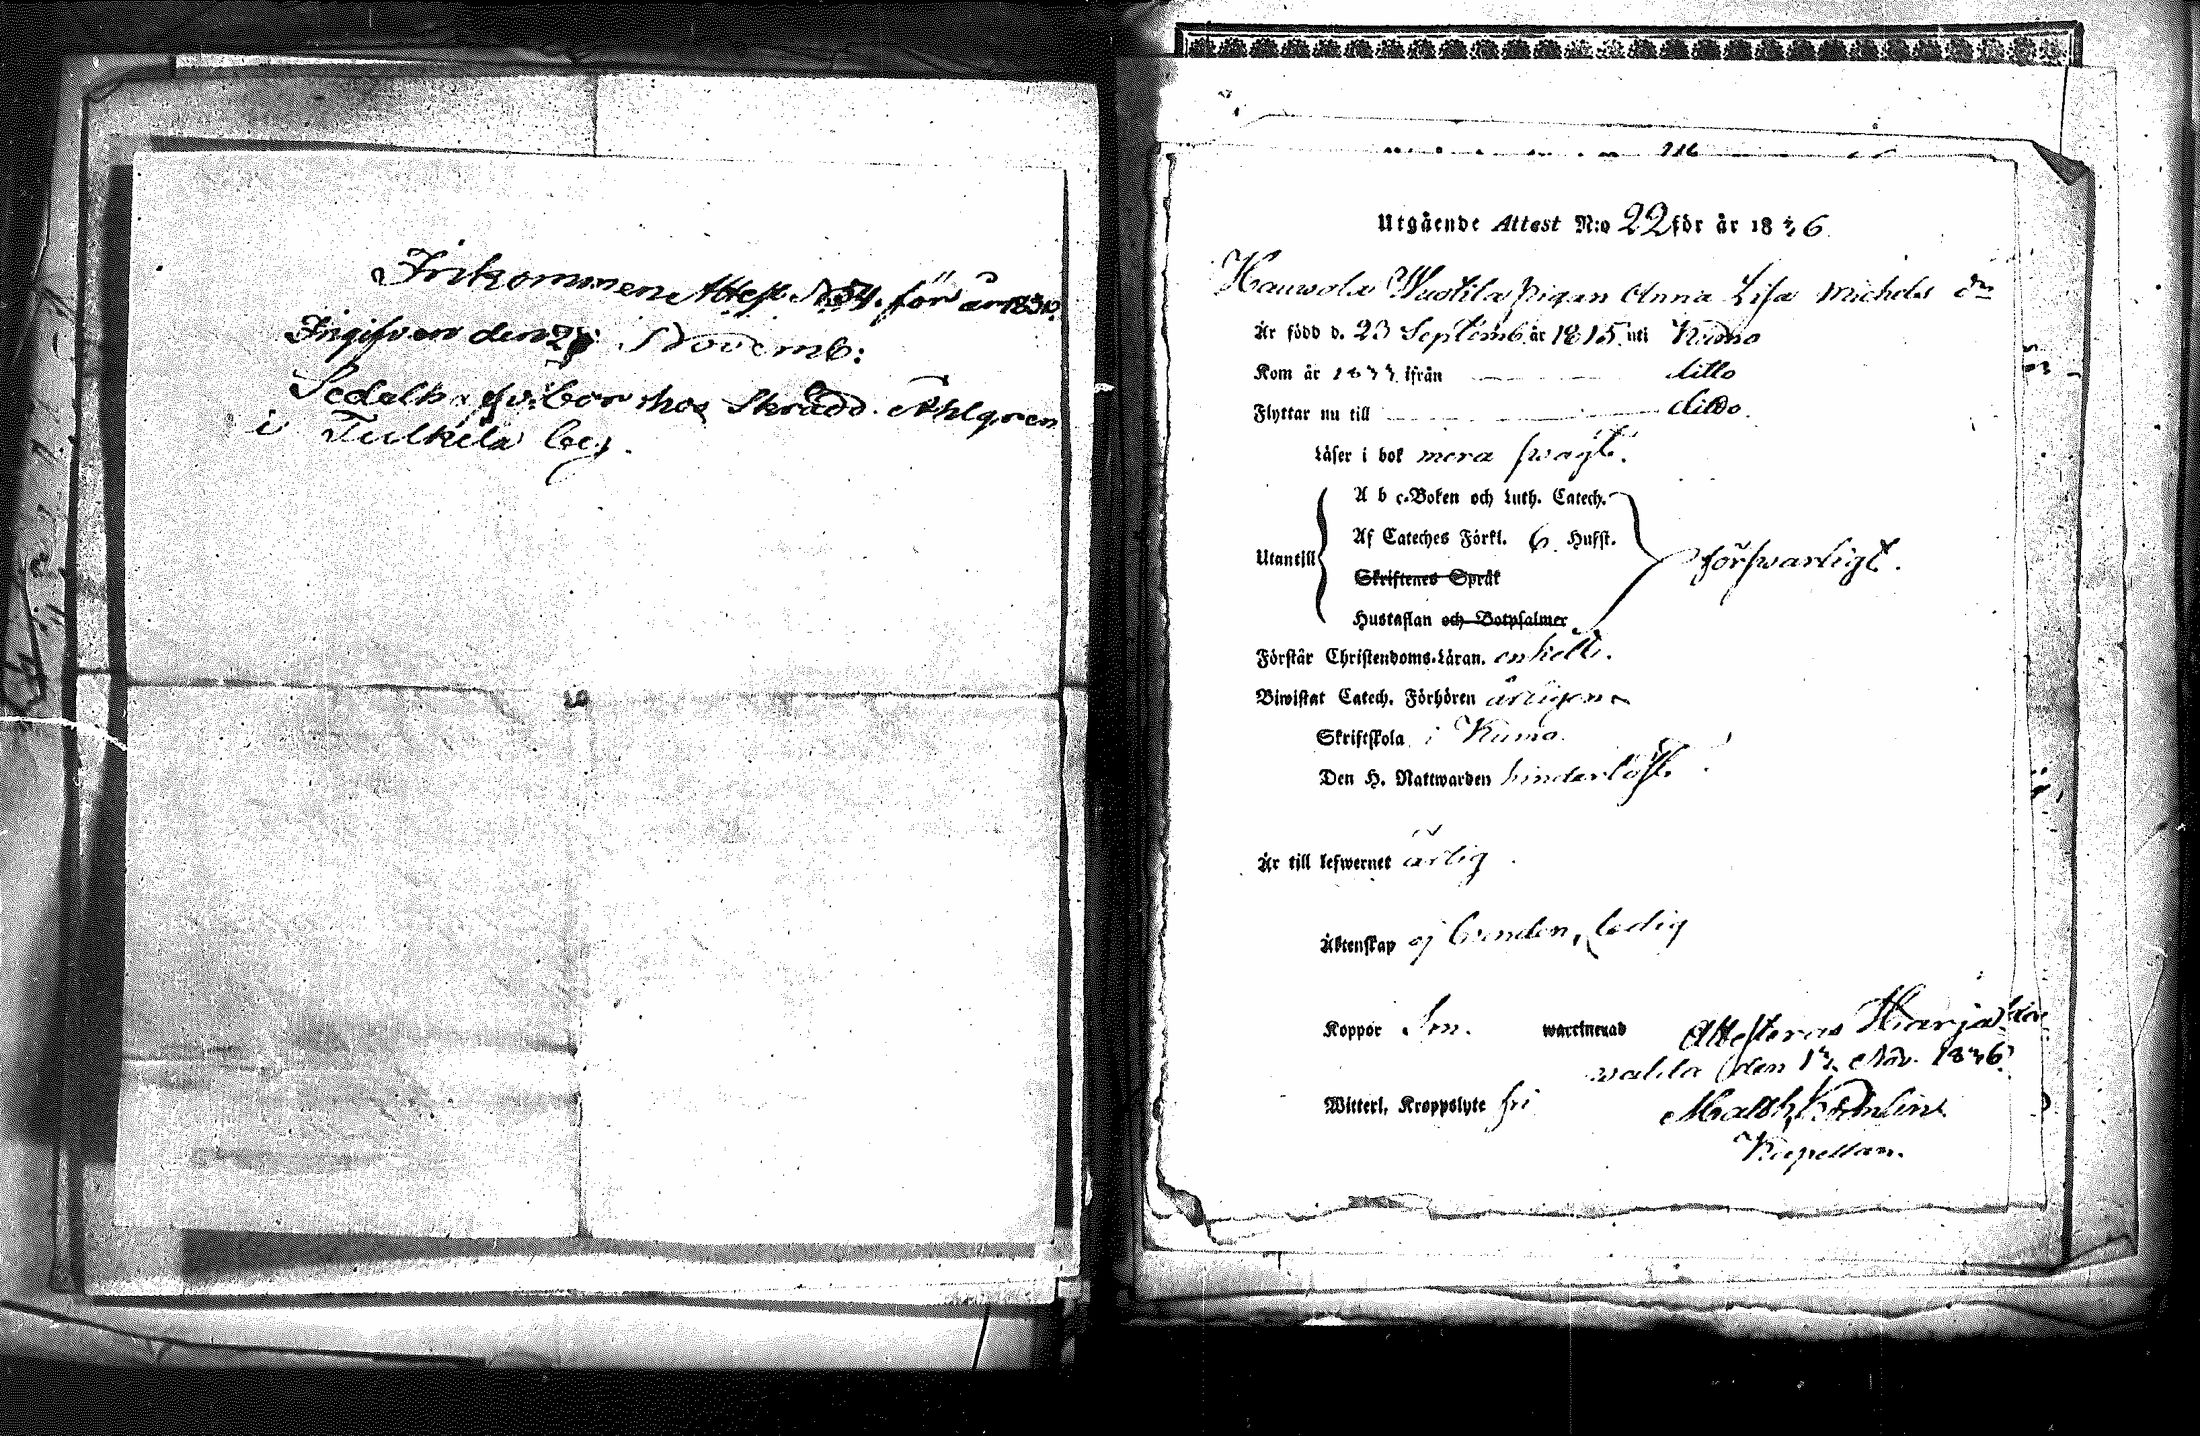 Inkommen Attest N:o 54. för år 1836.
Ingifven den 2 Novemb:
Sedelh: hos Skrädd. Ahlgren
i Tulkila by.
Utgående Attest N:o 22 för år 1836
Hauwola Wuotila pigan Anna Lisa Michels dr
Är född d. 23 Septemb. år 1815 uti Kumo
Kom år 1833 ifrån ditto
Flyttar nu till ditto.
Läser i bok mera swagt.
A b c-Boken och Luth. Catech.
Af Cateches Förkl. 6. Hufst.
Utantill förswarligt.
Skriftenes Språk
Hustaflan och Botpsalmer
Förstår Christendoms-Läran. enkelt.
Biwistat Catech. Förhören årligen
Skriftskola i Kumo.
Den H. Nattwarden hinderlöst.
Är till lefwernet ärlig.
Äktenskap ej bunden, ledig
Koppor waccinerad Attesteras Harja
walda den Nov. 1836.
Witterl. Kroppslyte fri
Kapellan.